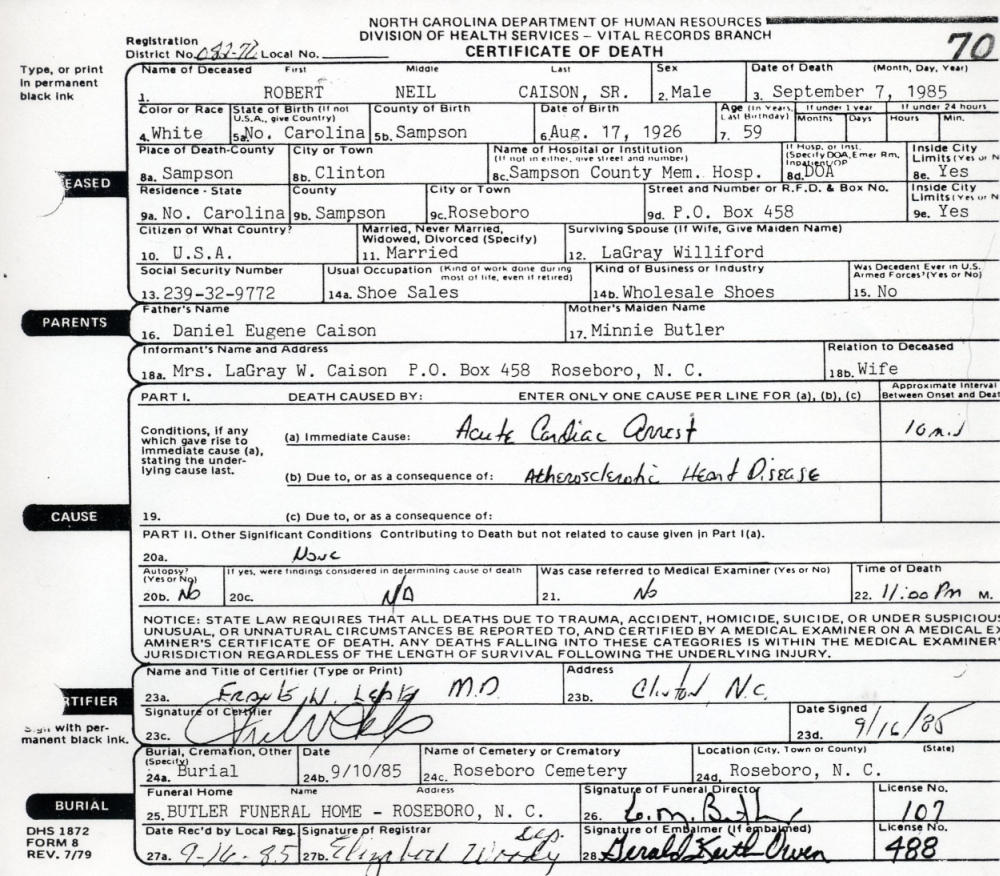 NORTH CAROLINA DEPARTMENT OF HUMAN RESOURCES
DIVISION OF HEALTH SERVICES – VITAL RECORDS BRANCH
CERTIFICATE OF DEATH
70
Registration
District No. 082-72 Local No.
Type, or print
in permanent
black ink
Name of Deceased First Middle Last Sex Date of Death (Month, Day, Year)
1. ROBERT NEIL CAISON, SR. 2. Male 3. September 7, 1985
Color or Race State of Birth (If not U.S.A., give Country) County of Birth Date of Birth Age (In Years, Last Birthday) If under 1 year Months Days If under 24 hours Hours Min.
4. White 5a. No. Carolina 5b. Sampson 6. Aug. 17, 1926 7. 59
Place of Death-County City or Town Name of Hospital or Institution (If not in either, give street and number) If Hosp. or Inst. (Specify DOA, Emer Rm, Inpatient/OP Inside City Limits (Yes or N
8a. Sampson 8b. Clinton 8c. Sampson County Mem. Hosp. 8d. DOA 8e. Yes
EASED
Residence - State County City or Town Street and Number or R.F.D. & Box No. Inside City Limits (Yes or N
9a. No. Carolina 9b. Sampson 9c. Roseboro 9d. P.O. Box 458 9e. Yes
Citizen of What Country? Married, Never Married, Widowed, Divorced (Specify) Surviving Spouse (If Wife, Give Maiden Name)
10. U.S.A. 11. Married 12. LaGray Williford
Social Security Number Usual Occupation (Kind of work done during most of life, even if retired) Kind of Business or Industry Was Decedent Ever in U.S. Armed Forces? (Yes or No)
13. 239-32-9772 14a. Shoe Sales 14b. Wholesale Shoes 15. No
PARENTS
Father's Name Mother's Maiden Name
16. Daniel Eugene Caison 17. Minnie Butler
Informant's Name and Address Relation to Deceased
18a. Mrs. LaGray W. Caison P.O. Box 458 Roseboro, N. C. 18b. Wife
PART I. DEATH CAUSED BY: ENTER ONLY ONE CAUSE PER LINE FOR (a), (b), (c) Approximate Interval Between Onset and Deat
Conditions, if any
which gave rise to
immediate cause (a),
stating the under-
lying cause last.
(a) Immediate Cause: Acute Cardiac Arrest
(b) Due to, or as a consequence of: Atherosclerotic Heart Disease
CAUSE
19. (c) Due to, or as a consequence of:
PART II. Other Significant Conditions Contributing to Death but not related to cause given in Part I(a).
20a. None
Autopsy? (Yes or No) If yes, were findings considered in determining cause of death Was case referred to Medical Examiner (Yes or No) Time of Death
20b. No 20c. N/A 21. No 22. 11:00 Pm M.
NOTICE: STATE LAW REQUIRES THAT ALL DEATHS DUE TO TRAUMA, ACCIDENT, HOMICIDE, SUICIDE, OR UNDER SUSPICIOUS
UNUSUAL, OR UNNATURAL CIRCUMSTANCES BE REPORTED TO, AND CERTIFIED BY A MEDICAL EXAMINER ON A MEDICAL EX
AMINER'S CERTIFICATE OF DEATH. ANY DEATHS FALLING INTO THESE CATEGORIES IS WITHIN THE MEDICAL EXAMINER'
JURISDICTION REGARDLESS OF THE LENGTH OF SURVIVAL FOLLOWING THE UNDERLYING INJURY.
RTIFIER
Name and Title of Certifier (Type or Print) Address
23a. Frank W. M.D. 23b. Clinton N.C.
Sign with per-
manent black ink.
Signature of Certifier Date Signed
23c. 23d. 9/16/85
Burial, Cremation, Other (Specify) Date Name of Cemetery or Crematory Location (City, Town or County) (State)
24a. Burial 24b. 9/10/85 24c. Roseboro Cemetery 24d. Roseboro, N. C.
BURIAL
Funeral Home Name Address Signature of Funeral Director License No.
25. BUTLER FUNERAL HOME - ROSEBORO, N. C. 26. 107
DHS 1872
FORM 8
REV. 7/79
Date Rec'd by Local Reg. Signature of Registrar Signature of Embalmer (If embalmed) License No.
27a. 9-16-85 27b. Elizabeth Woody Dep. 28. Gerald Keith Owen 488